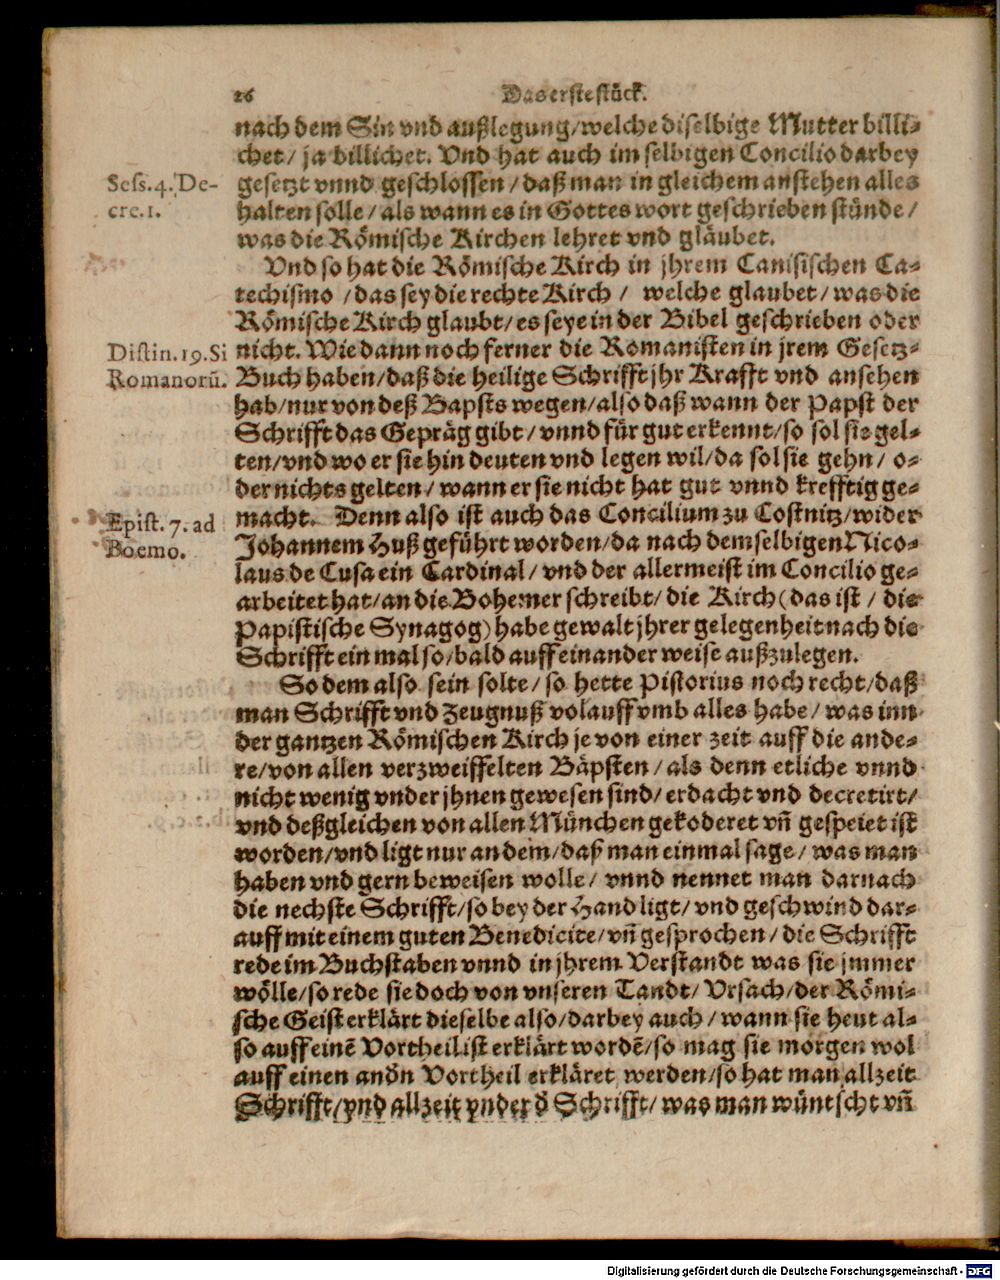 26
Das erste stück.
nach dem Sin vnd außlegung/welche diselbige Mutter billi-
chet/ ja billichet. Vnd hat auch im selbigen Concilio darbey
Sess. 4. De-
gesetzt vnnd geschlossen/ daß man in gleichem anstehen alles
cre. 1.
halten solle/ als wann es in Gottes wort geschrieben stünde/
was die Römische Kirchen lehret vnd gläubet.
Vnd so hat die Römische Kirch in jhrem Canisischen Ca-
techismo /das sey die rechte Kirch/ welche glaubet/ was die
Römische Kirch glaubt/ es seye in der Bibel geschrieben oder
Distin. 19. Si
nicht. Wie dann noch ferner die Romanisten in jrem Gesetz-
Romanorū.
Buch haben/daß die heilige Schrifft jhr Krafft vnd ansehen
hab/nur von deß Bapsts wegen/also daß wann der Papst der
Schrifft das Gepräg gibt/ vnnd für gut erkennt/so sol sie gel-
ten/vnd wo er sie hin deuten vnd legen wil/da sol sie gehn/ o-
der nichts gelten/ wann er sie nicht hat gut vnnd krefftig ge-
Epist. 7. ad
macht. Denn also ist auch das Concilium zu Costnitz/wider
Boemo.
Johannem Huß geführt worden/da nach demselbigen Nico-
laus de Cusa ein Cardinal/ vnd der allermeist im Concilio ge-
arbeitet hat/an die Bohemer schreibt/ die Kirch (das ist / die
Papistische Synagog) habe gewalt jhrer gelegenheit nach die
Schrifft ein mal so/bald auff ein ander weise außzulegen.
So dem also sein solte/ so hette Pistorius noch recht/daß
man Schrifft vnd Zeugnuß volauff vmb alles habe/ was inn
der gantzen Römischen Kirch je von einer zeit auff die ande-
re/von allen verzweiffelten Bäpsten/ als denn etliche vnnd
nicht wenig vnder jhnen gewesen sind/ erdacht vnd decretirt/
vnd deßgleichen von allen München gekoderet vñ gespeiet ist
worden/vnd ligt nur an dem/daß man einmal sage/ was man
haben vnd gern beweisen wolle/ vnnd nennet man darnach
die nechste Schrifft/so bey der Hand ligt/ vnd geschwind dar-
auff mit einem guten Benedicite/vñ gesprochen/ die Schrifft
rede im Buchstaben vnnd in jhrem Verstandt was sie jmmer
wölle/so rede sie doch von vnseren Tandt/ Vrsach/der Römi-
sche Geist erklärt dieselbe also/darbey auch/ wann sie heut al-
so auff einē Vortheil ist erklärt wordē/so mag sie morgen wol
auff einen andn Vortheil erkläret werden/so hat man allzeit
Schrifft/vnd allzeit vnder d Schrifft/ was man wüntscht vñ
Digitalisierung gefördert durch die Deutsche Forschungsgemeinschaft - DFG